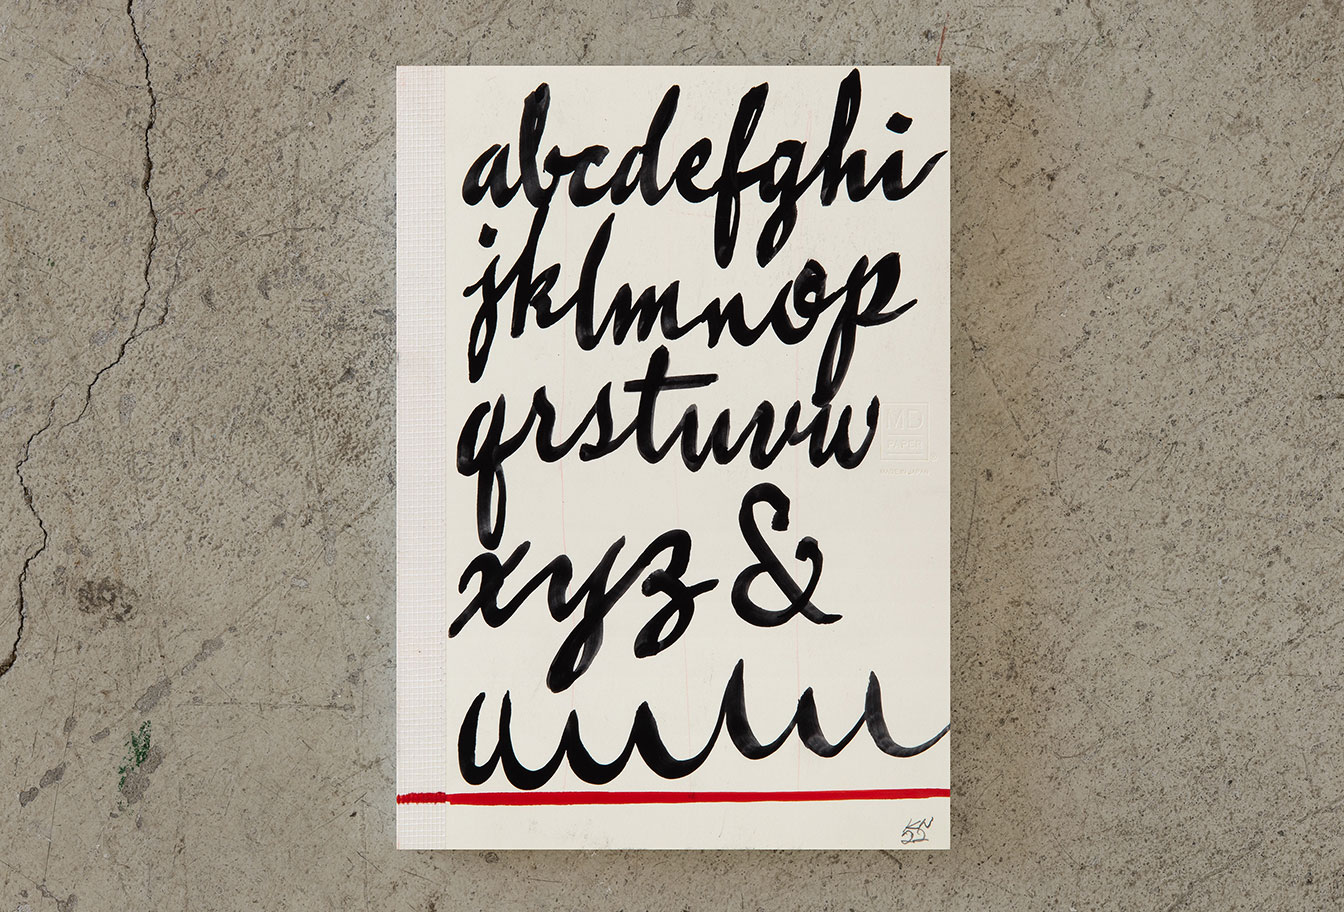 abcdefghi
jklmnop
qrstuvw
xyz &
MD
PAPER
MADE IN JAPAN
KN
22